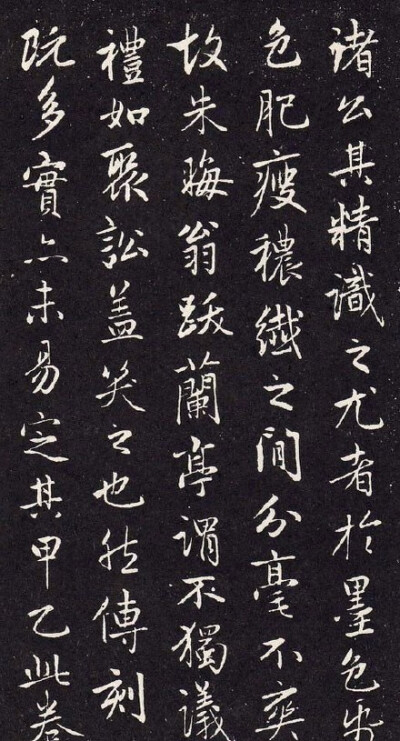 諸公其精識之尤者於墨色帋
色肥瘦穠纖之間分毫不爽
故朱晦翁跋蘭亭謂不獨議
禮如聚訟蓋笑之也然傳刻
既多實亦未易定其甲乙此卷